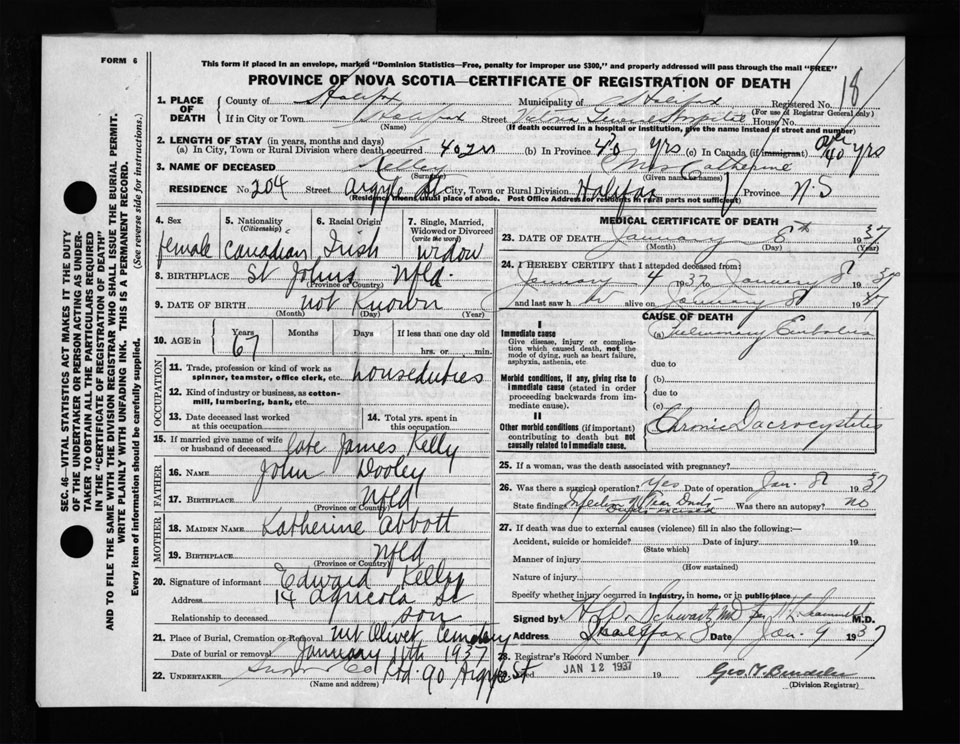 FORM 6
This form if placed in an envelope, marked "Dominion Statistics—Free, penalty for improper use $300," and properly addressed will pass through the mail "FREE"
PROVINCE OF NOVA SCOTIA—CERTIFICATE OF REGISTRATION OF DEATH
1. PLACE OF DEATH County of Halifax Municipality of Halifax Registered No. 18
(For use of Registrar General only)
If in City or Town Halifax Street Victoria General Hospital House No.
(Name) (If death occurred in a hospital or institution, give the name instead of street and number)
2. LENGTH OF STAY (in years, months and days)
(a) In City, Town or Rural Division where death occurred 40 yrs (b) In Province 40 yrs (c) In Canada (if immigrant) over 40 yrs
3. NAME OF DECEASED Kelley Mrs Catherine
(Surname) (Given name or names)
RESIDENCE No. 204 Street Argyle St City, Town or Rural Division Halifax Province N.S
(Residence means usual place of abode. Post Office Address for residents in rural parts not sufficient)
4. Sex female
5. Nationality (Citizenship) Canadian
6. Racial Origin Irish
7. Single, Married, Widowed or Divorced (write the word) widow
8. BIRTHPLACE St Johns Nfld.
(Province or Country)
9. DATE OF BIRTH not Known
(Month) (Day) (Year)
10. AGE in Years 67 Months Days If less than one day old hrs. or min.
OCCUPATION
11. Trade, profession or kind of work as spinner, teamster, office clerk, etc. houseduties
12. Kind of industry or business, as cotton-mill, lumbering, bank, etc.
13. Date deceased last worked at this occupation
14. Total yrs. spent in this occupation
15. If married give name of wife or husband of deceased late James Kelly
FATHER
16. NAME John Dooley
17. BIRTHPLACE Nfld
(Province or Country)
MOTHER
18. MAIDEN NAME Katherine Abbott
19. BIRTHPLACE Nfld
(Province or Country)
20. Signature of informant Edward Kelly
Address 14 Agricola St
Relationship to deceased son
21. Place of Burial, Cremation or Removal Mt Olivet Cemetery
Date of burial or removal January 11th 1937
22. UNDERTAKER Snow Co Ltd. 90 Argyle St
(Name and address)
MEDICAL CERTIFICATE OF DEATH
23. DATE OF DEATH January 8th 1937
(Month) (Day) (Year)
24. I HEREBY CERTIFY that I attended deceased from:
January 4 1937 to January 8 1937
and last saw her alive on January 8 1937
CAUSE OF DEATH
I
Immediate cause
Give disease, injury or complication which caused death, not the mode of dying, such as heart failure, asphyxia, asthenia, etc
(a) Pulmonary Embolus
due to
Morbid conditions, if any, giving rise to immediate cause (stated in order proceeding backwards from immediate cause).
(b)
due to
(c)
II
Other morbid conditions (if important) contributing to death but not causally related to immediate cause.
Chronic Dacrocystitis
25. If a woman, was the death associated with pregnancy?
26. Was there a surgical operation? Yes Date of operation Jan. 8 1937
State finding Infection of Tear Duct Was there an autopsy? no
27. If death was due to external causes (violence) fill in also the following:—
Accident, suicide or homicide? Date of injury 19
(State which)
Manner of injury
(How sustained)
Nature of injury
Specify whether injury occurred in industry, in home, or in public place
Signed by H W Schwartz MD M.D.
Address Halifax Date Jan. 9 1937
28. Registrar's Record Number
Filed JAN 12 1937 19
(Division Registrar)
SEC. 46—VITAL STATISTICS ACT MAKES IT THE DUTY OF THE UNDERTAKER OR PERSON ACTING AS UNDERTAKER TO OBTAIN ALL THE PARTICULARS REQUIRED IN THE "CERTIFICATE OF REGISTRATION OF DEATH"
AND TO FILE THE SAME WITH THE DIVISION REGISTRAR WHO SHALL ISSUE THE BURIAL PERMIT.
WRITE PLAINLY WITH UNFADING INK. THIS IS A PERMANENT RECORD.
Every item of information should be carefully supplied. (See reverse side for instructions.)